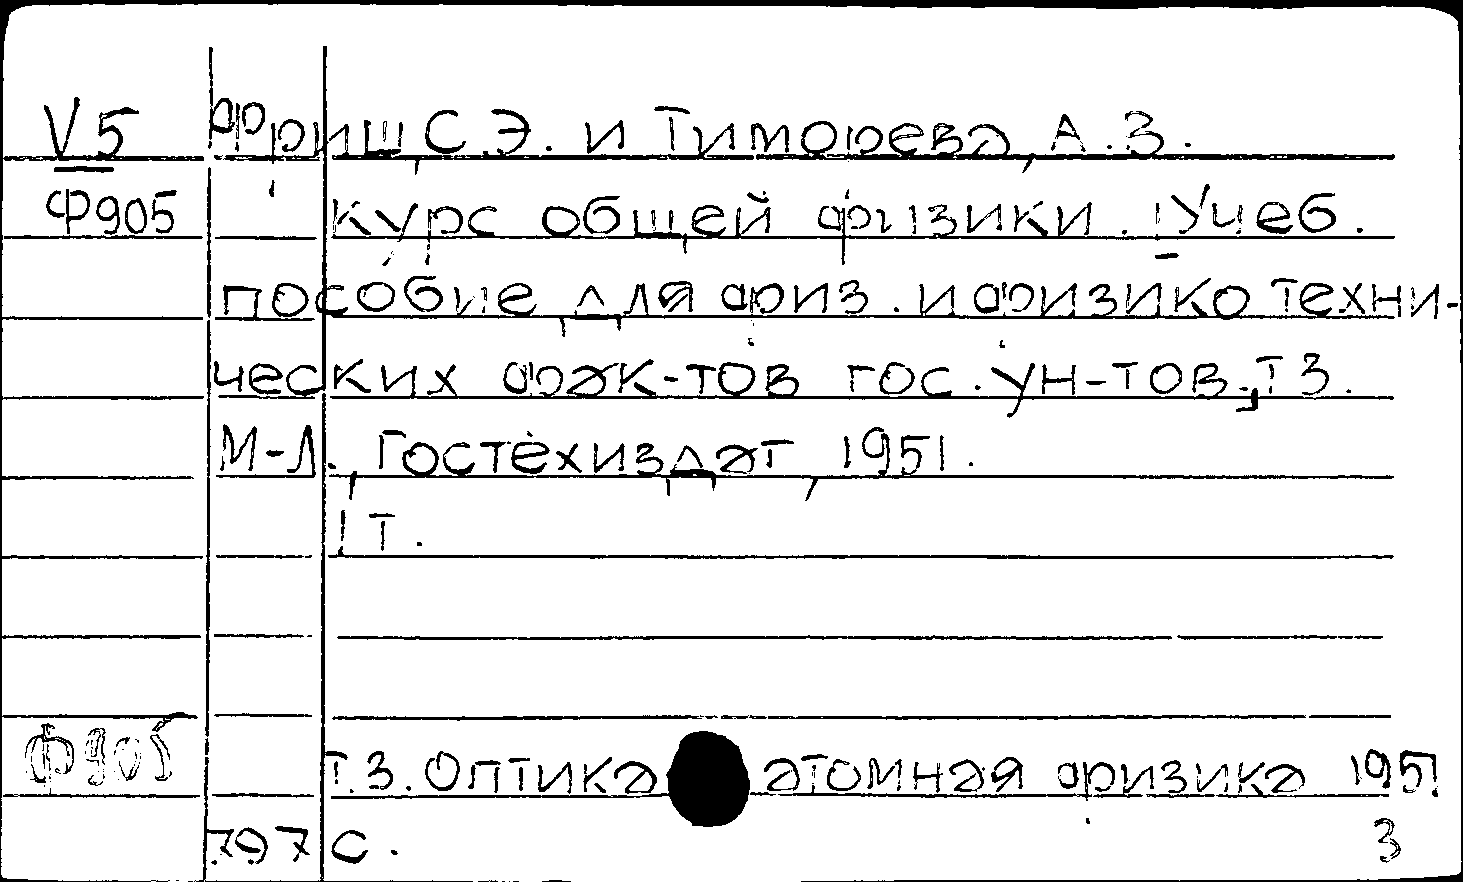 V5 Фриш, С.Э. и Тиморева, А.З.
Ф905 Курс общей физики. Учеб.
пособие для физ. и физико техни-
ческих фак-тов гос. ун-тов, т 3.
М-Л., Гостехиздат, 1951.
1 т.
Ф905 Т.3. Оптика атомная физика 1951
797 с. 3